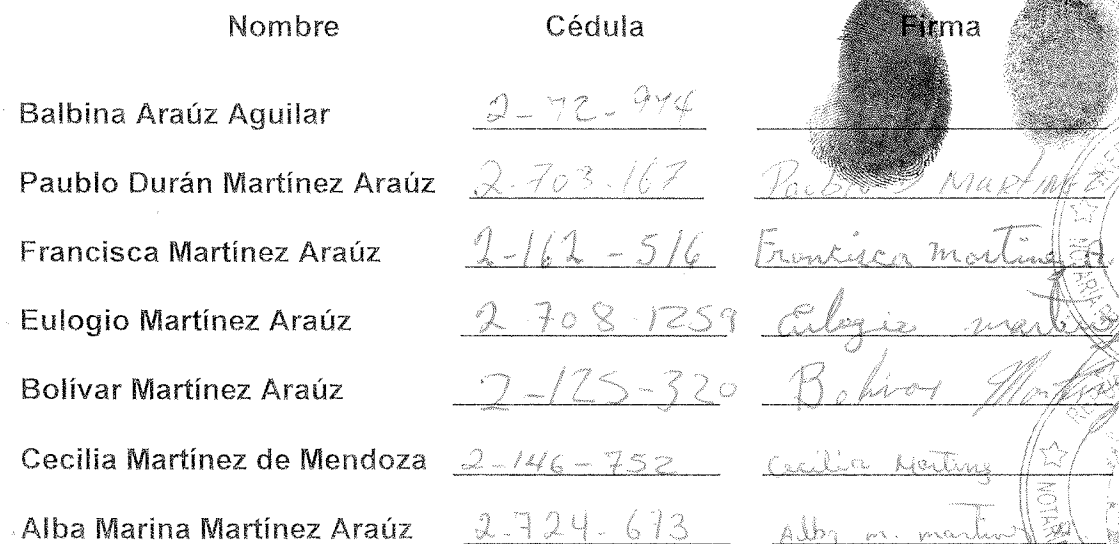 Nombre Cédula Firma
Balbina Araúz Aguilar 2-72-974
Paublo Durán Martínez Araúz 2-703-167 Pablo D Martinez
Francisca Martínez Araúz 2-162-516 Francisca Martinez A.
Eulogio Martínez Araúz 2-708-1259 Eulogio martinez
Bolívar Martínez Araúz 2-125-320 Bolivar Martinez
Cecilia Martínez de Mendoza 2-146-752 Cecilia Martinez
Alba Marina Martínez Araúz 2-724-673 Alba m. martin
NOTARIA
NOTARI